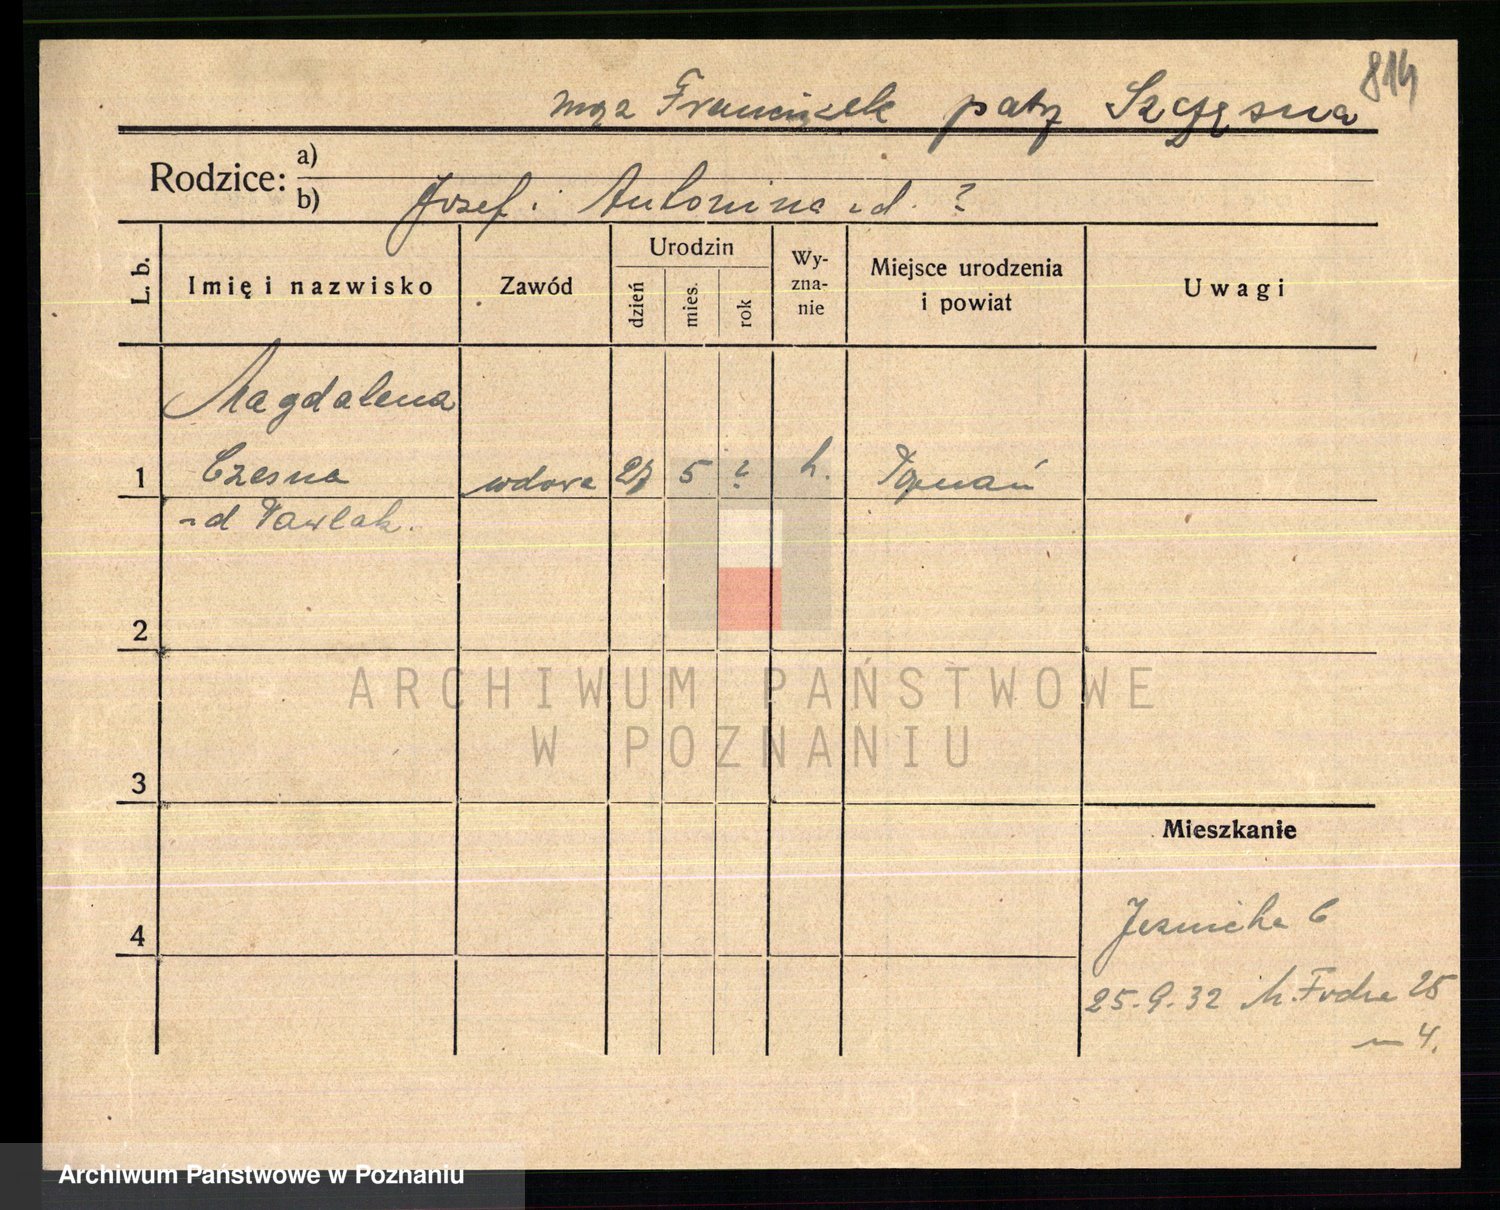 814
mąż Franciszek patrz Szczęsna
Rodzice:
a)
b) Jozef i Antonina zd. ?
L. b.
Imię i nazwisko
Zawód
Urodzin
dzień
mies.
rok
Wy-
zna-
nie
Miejsce urodzenia
i powiat
Uwagi
Magdalena
1 Czesna wdowa 27 5 ? k. Poznań
zd Pawlak.
2
ARCHIWUM PAŃSTWOWE
W POZNANIU
3
Mieszkanie
4
6
25.9.32 25
m 4.
Archiwum Państwowe w Poznaniu